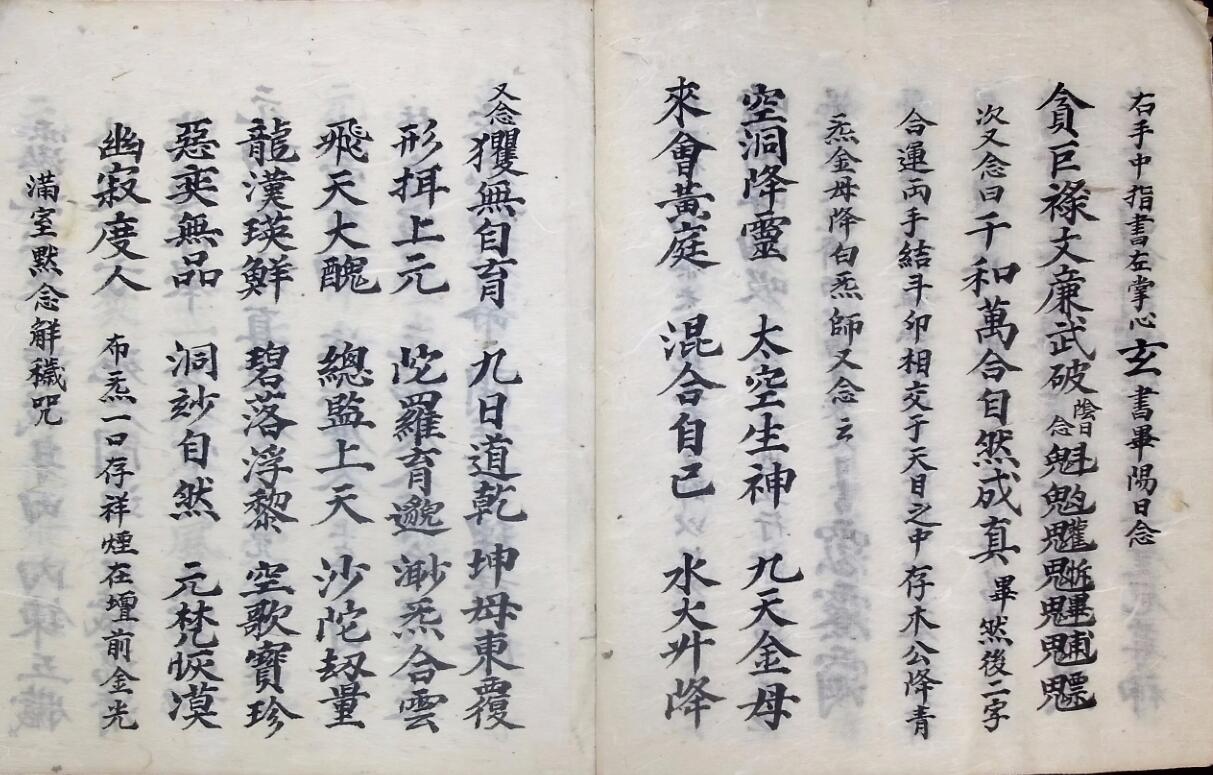 右手中指書左掌心玄書畢陽日念
貪巨祿文廉武破陰日念魁𩲃䰢魓魒
次又念曰千和萬合自然成真畢然後二字
合運両手結斗印相交于天目之中存木公降青
炁金母降白炁師又念云
空洞降靈 太空生神 九天金母
來會黃庭 混合自已 水火升降
又念玃無自育 九日道乾 坤母東覆
形攝上元 陀羅育邈 渺炁合雲
飛天大醜 總監上天 沙陀劫量
龍漢瑛鮮 碧落浮黎 空歌寶珍
惡奕無品 洞玅自然 元梵恢漠
幽寂度人 布炁一口存祥煙在壇前金光
滿室默念解穢咒